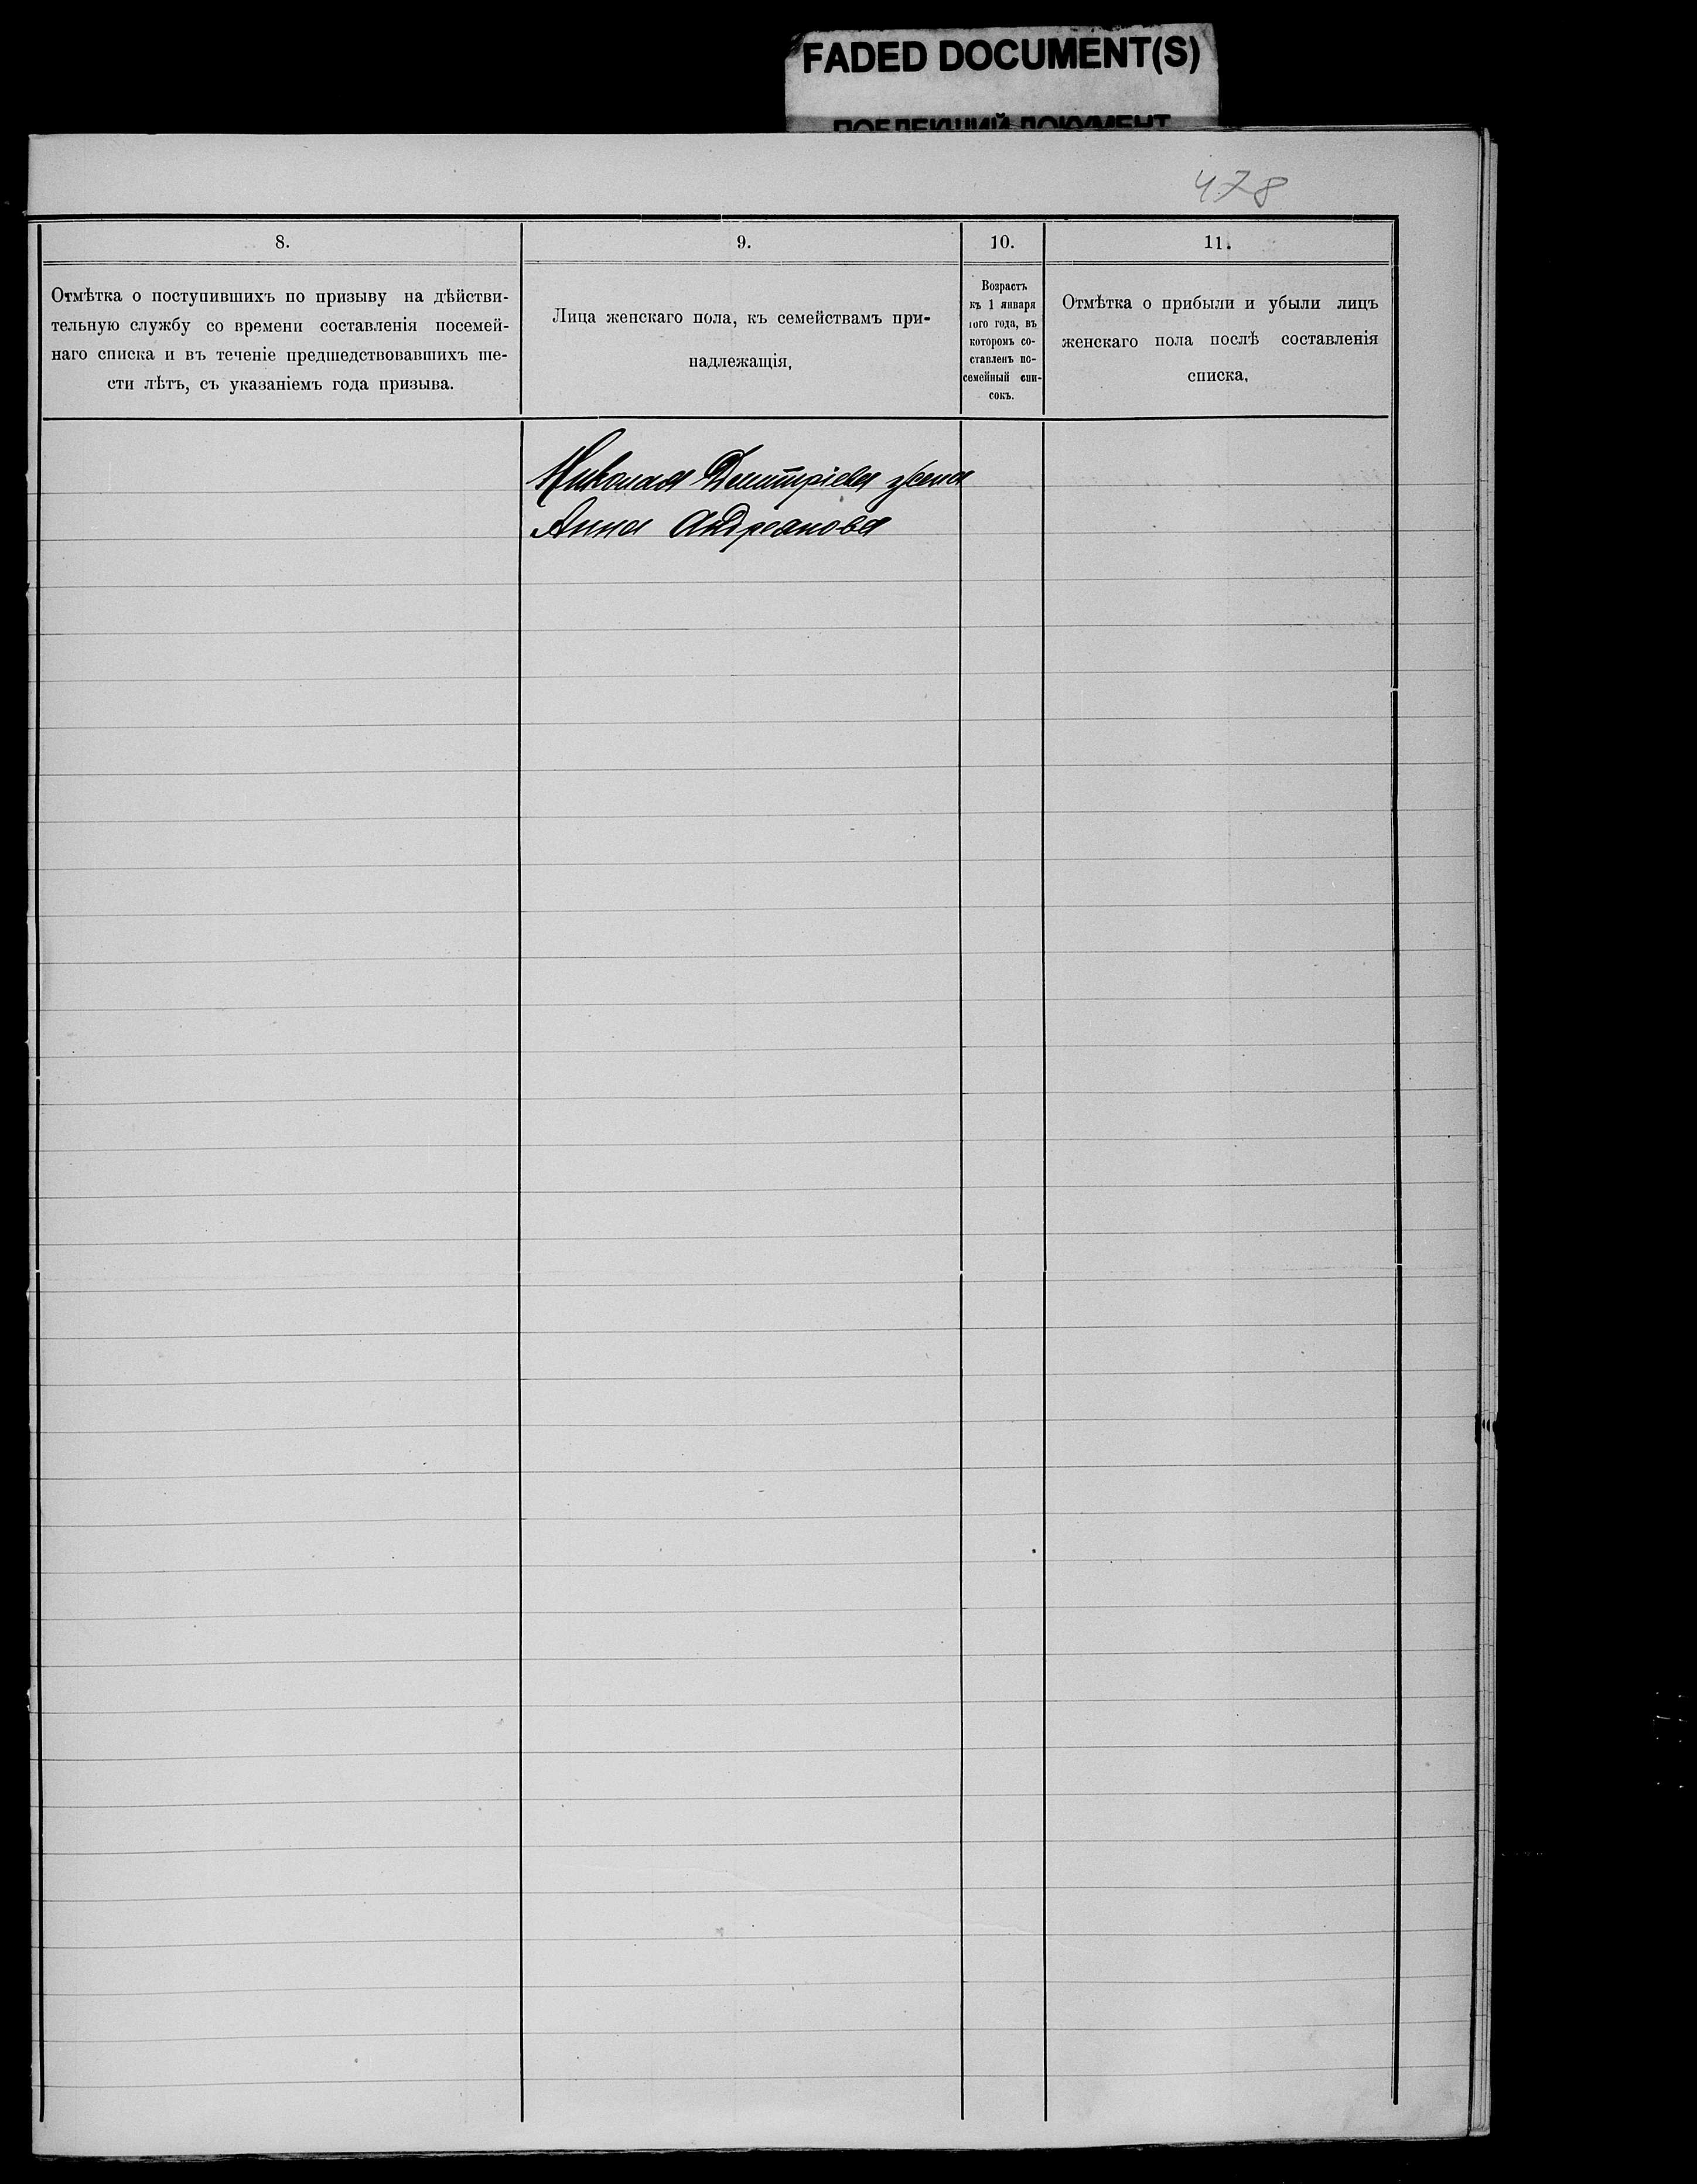 FADED DOCUMENT(S)
ПОБЛЕКШИЙ ДОКУМЕНТ
478
8.
Отмѣтка о поступившихъ по призыву на дѣйстви-
тельную службу со времени составленія посемей-
наго списка и въ теченіе предшедствовавшихъ ше-
сти лѣтъ, съ указаніемъ года призыва.
9.
Лица женскаго пола, къ семействамъ при-
надлежащія,
10.
Возрастъ
къ 1 января
1ого года, въ
которомъ со-
ставленъ по-
семейный спи-
сокъ.
11.
Отмѣтка о прибыли и убыли лицъ
женскаго пола послѣ составленія
списка,
Николая Дмитріева жена
Анна Андреанова